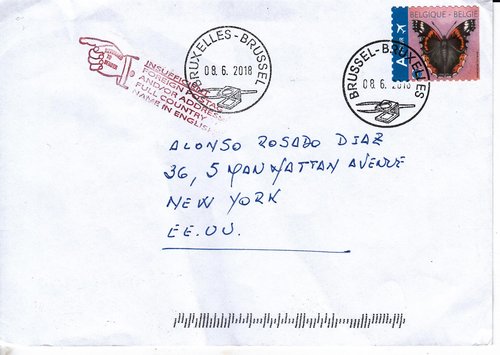 BELGIQUE - BELGIE
BRUXELLES - BRUSSEL
08. 6. 2018
BRUSSEL - BRUXELLES
08. 6. 2018
INSUFFICIENT
FOREIGN POSTAL
AND/OR ADDRESS
FULL COUNTRY
NAME IN ENGLISH
ALONSO ROSADO DIAZ
36, 5 MANHATTAN AVENUE
NEW YORK
EE.UU.